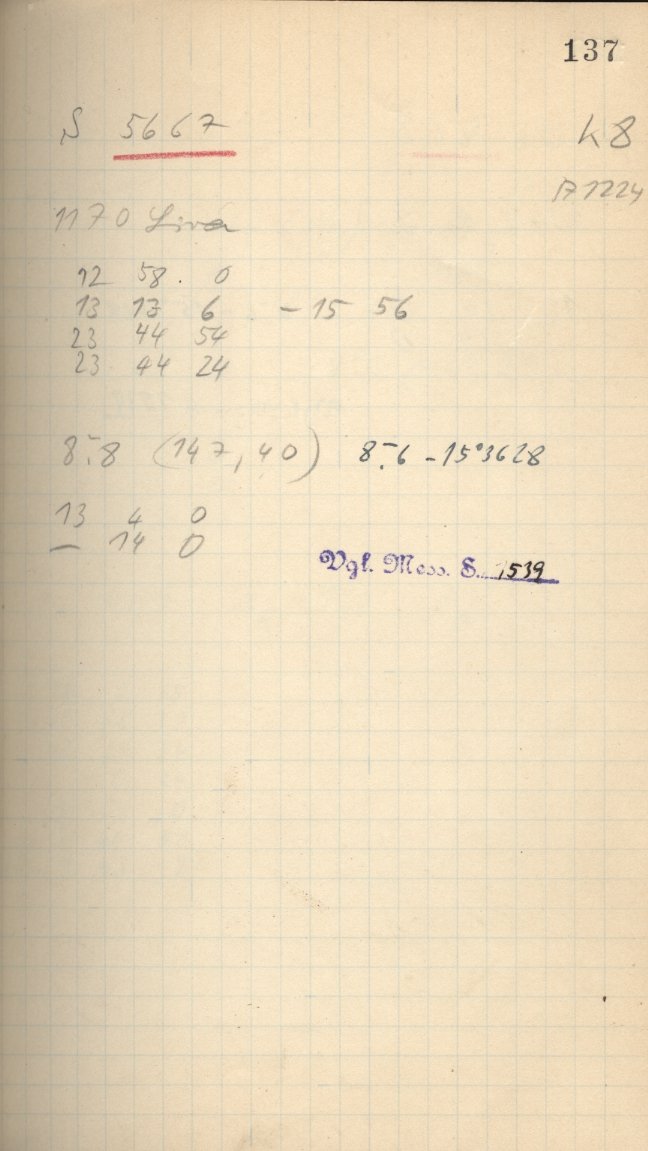 137
S 5667
k8
A 1224
1170 Siva
12 58. 0
13 17 6 - 15 56
23 44 54
23 44 24
8.8 (147, 40) 8.6 - 15°3628
13 4 0
- 14 0
Vgl. Mess. S. 1539